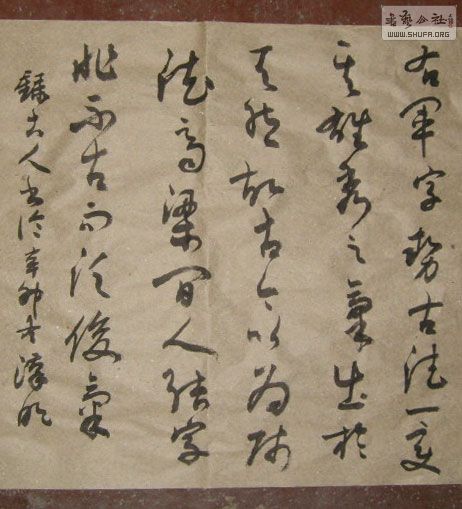 右軍字勢古法一變
其雄秀之氣出於
天然故古今以為師
法齊梁間人結字
非不古而乏俊氣
錄古人書論辛卯
書藝公社
WWW.SHUFA.ORG